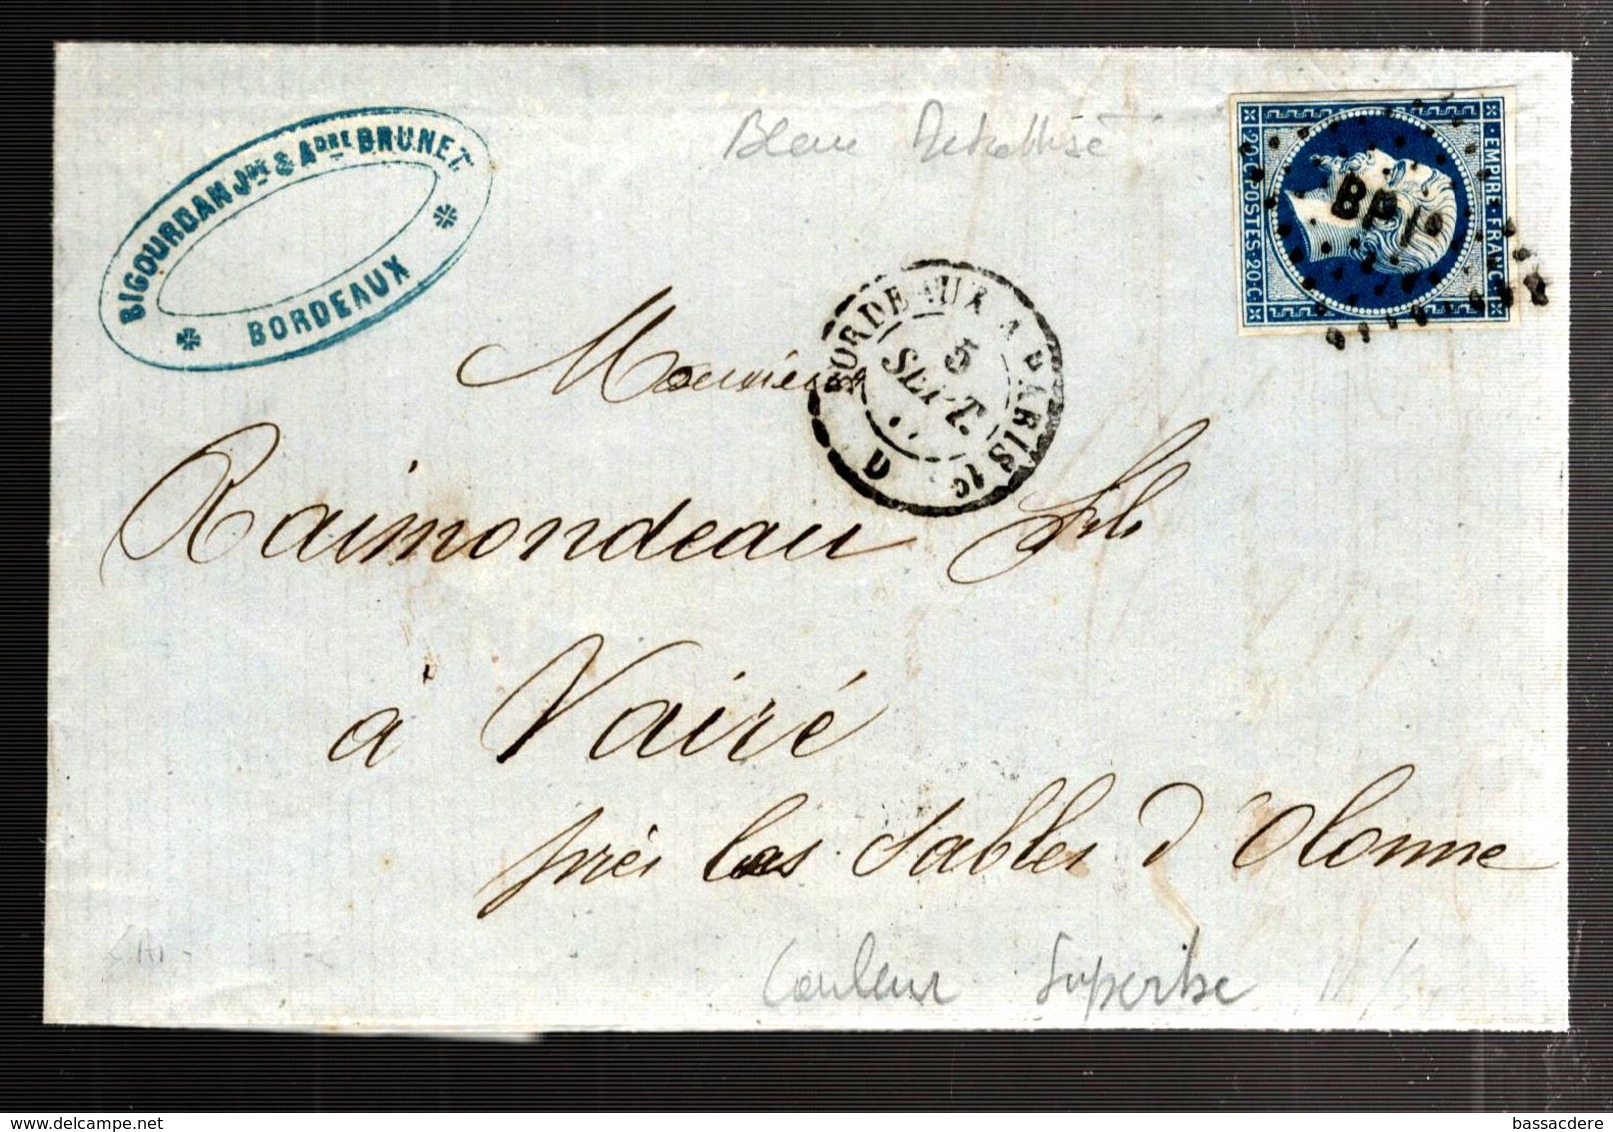 BIGOURDAN Jne & Adre BRUNET.
BORDEAUX
Bleu
EMPIRE · FRANC ·
20 · C · POSTES · 20 · C
BP 1°
BORDEAUX A PARIS 1°
5
SEPT.
D
Monsieur
Raimondeau fils
à Vairé
près les Sables d'Olonne
Couleur Superbe
delcampe.net
bassacdere